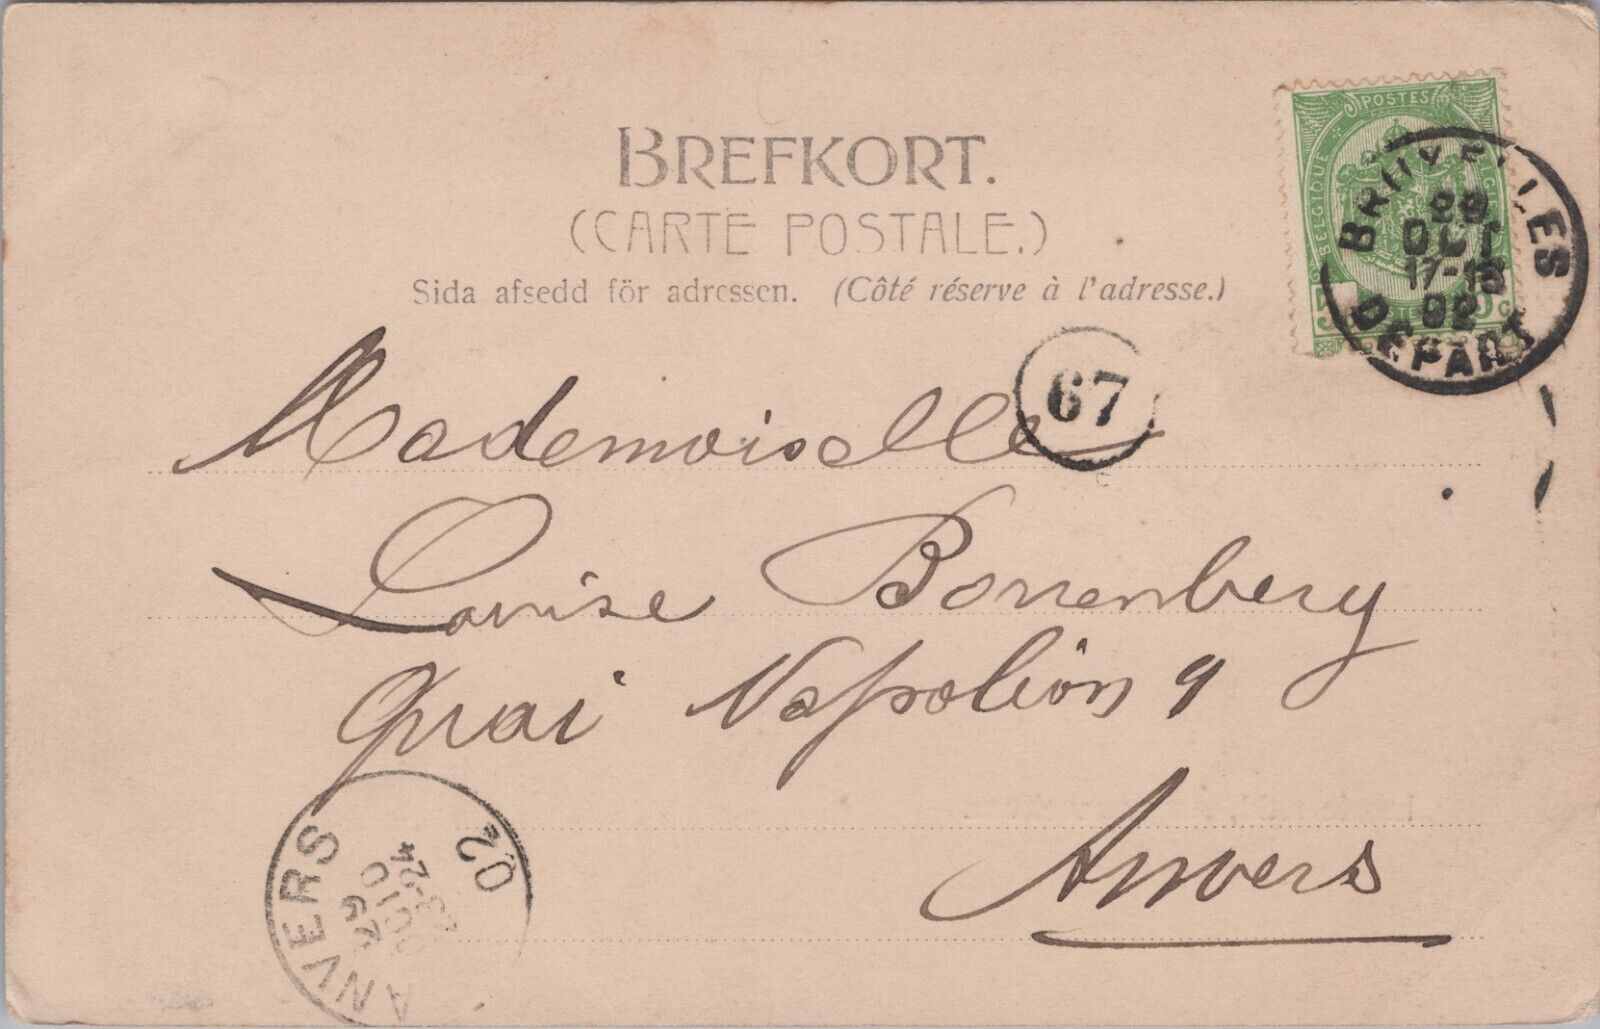 POSTES
BELGIQUE BELGIE
BRUXELLES
29
OCT
17-18
02
DEPART
BREFKORT.
(CARTE POSTALE.)
Sida afsedd för adressen. (Côté réserve à l'adresse.)
67
Mademoiselle
Louise Bonenberg
Quai Napoléon 9
Anvers
ANVERS
29
OCT
23-24
02